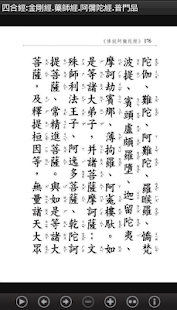 四合經:金剛經.藥師經.阿彌陀經.普門品
《佛說阿彌陀經》 176
陀伽、難陀、阿難陀、羅睺羅、憍梵
波提、賓頭盧頗羅墮、迦留陀夷、
摩訶劫賓那、薄拘羅、阿㝹樓馱。如
是等諸大弟子。并諸菩薩摩訶薩：文
殊師利法王子、阿逸多菩薩、乾陀訶
提菩薩、常精進菩薩，與如是等諸大
菩薩，及釋提桓因等，無量諸天大眾